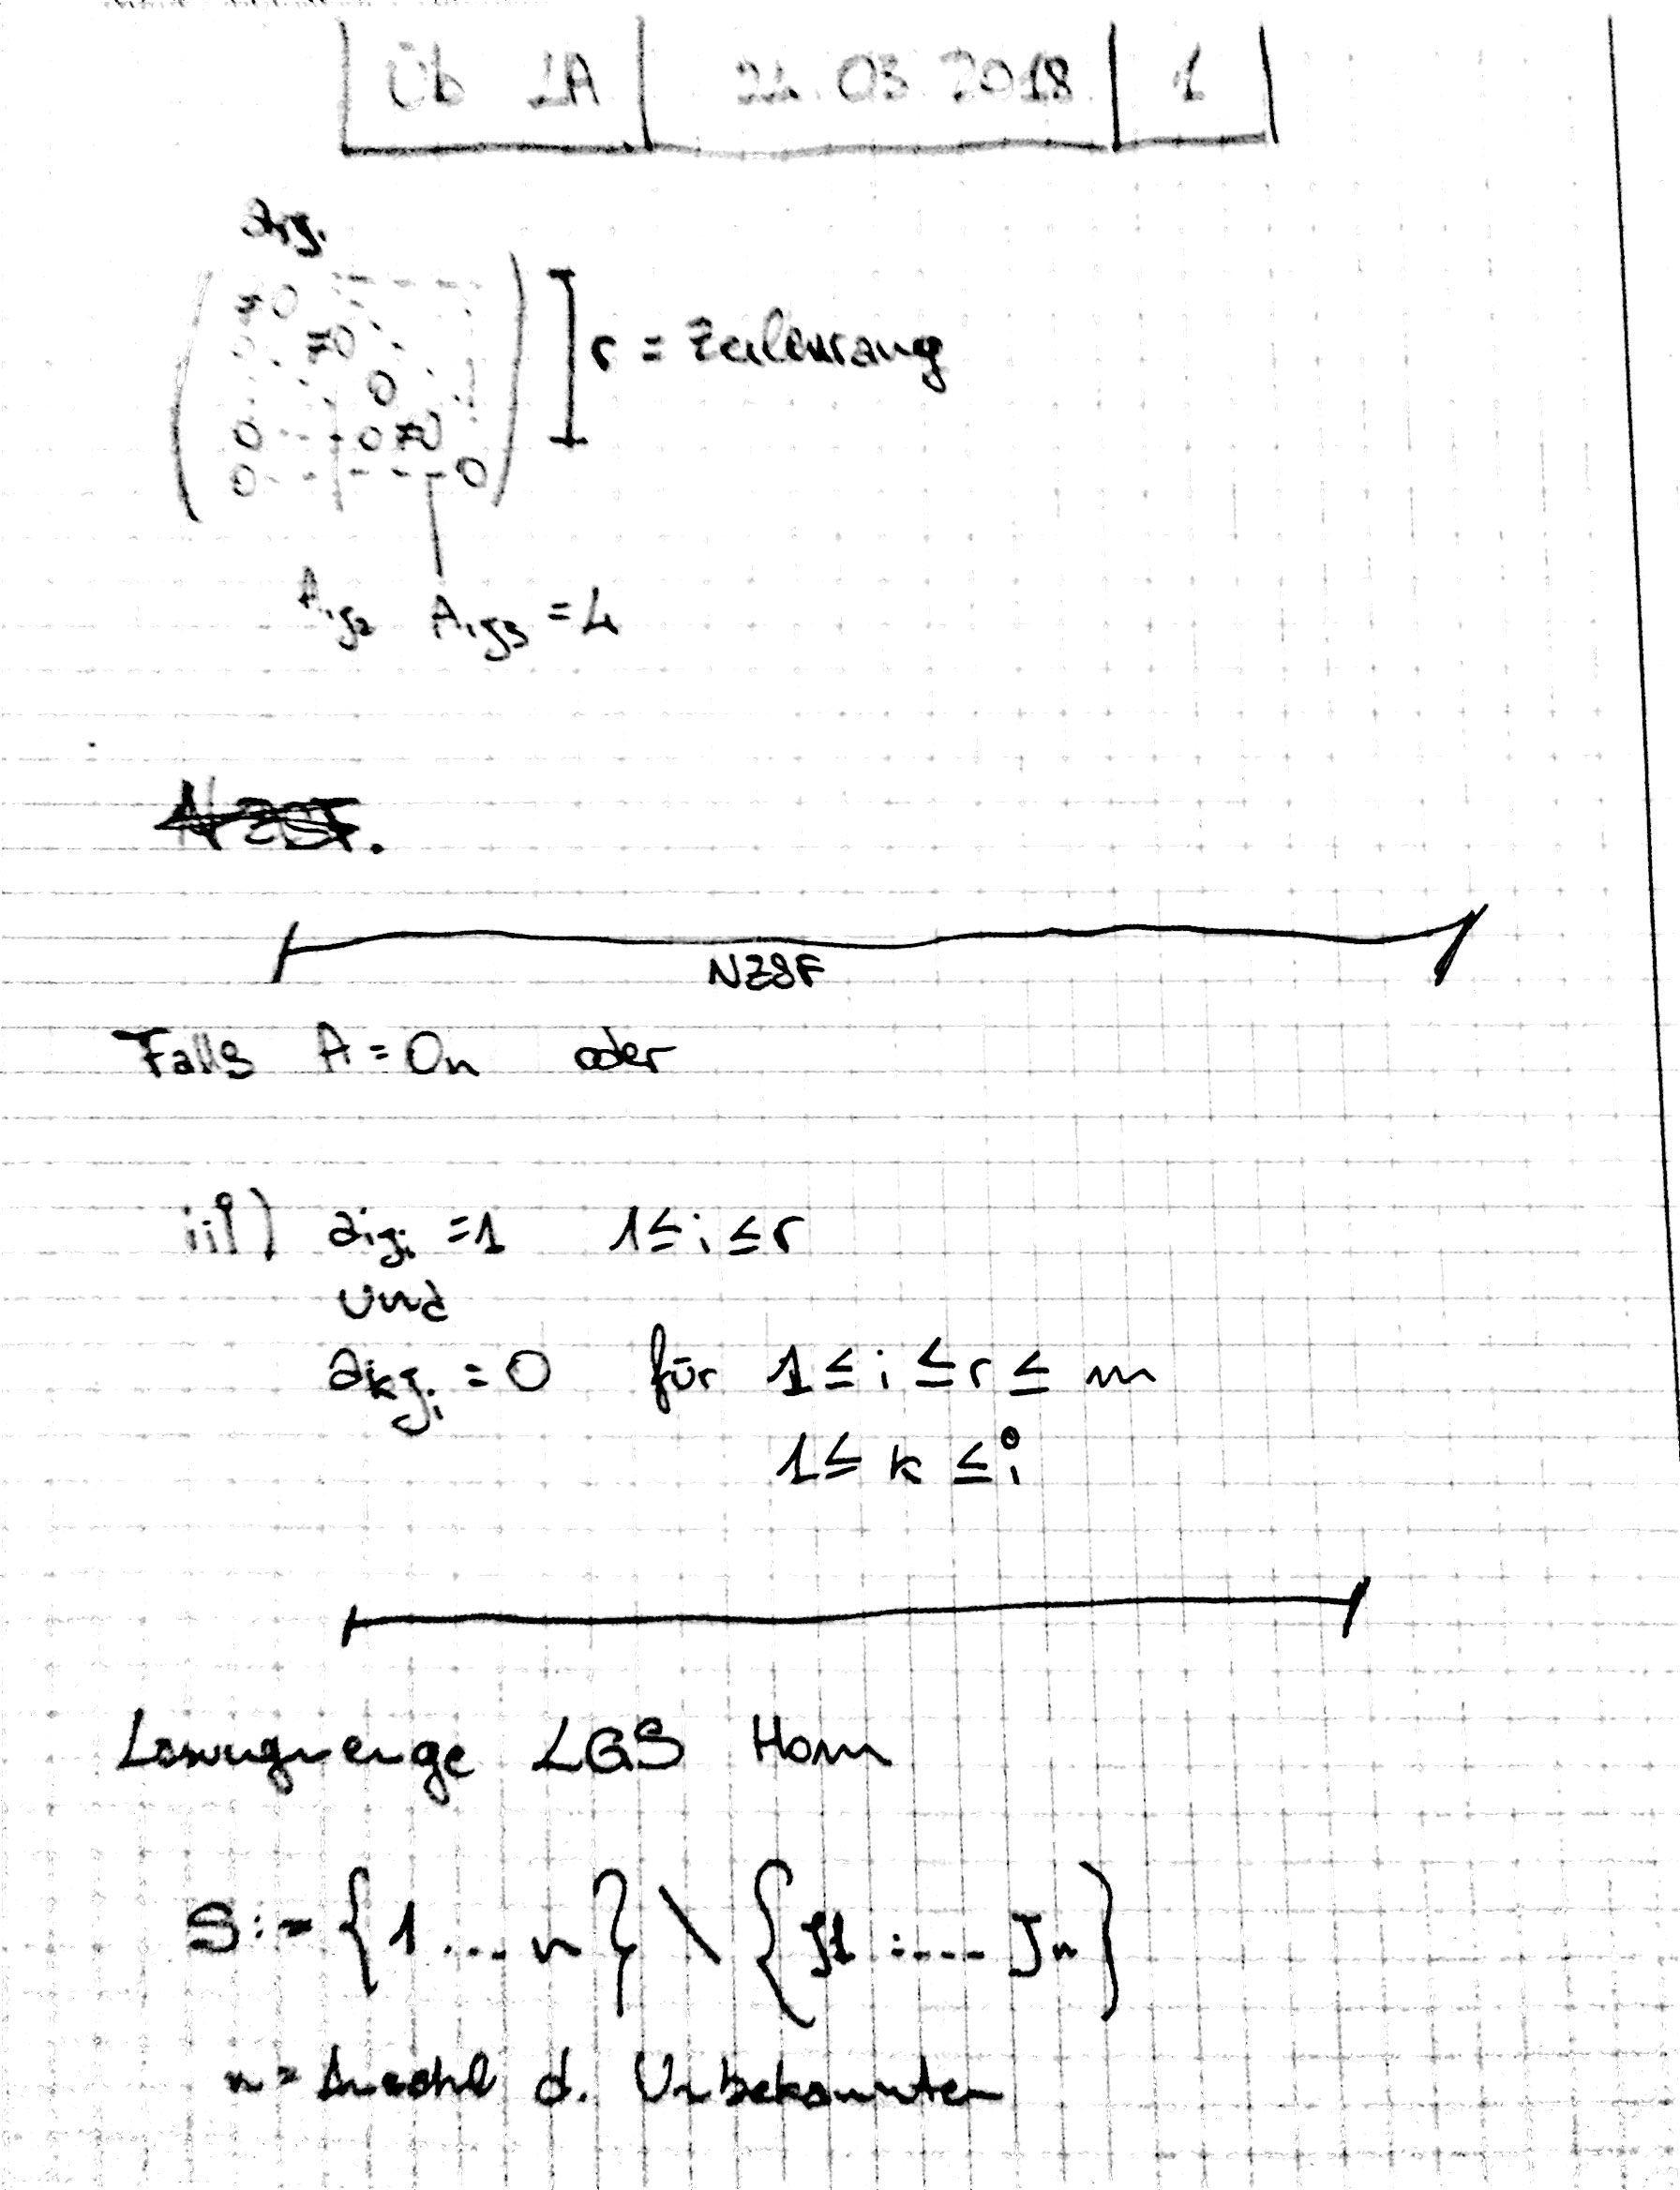 Üb 1A | 21.03.2018 | 1
≠0
0 ≠0
0
0 - - - 0 ≠0
0 - - - - - 0
r = Zeilenrang
A₁j₂ A₁j₃ = 4
NZSF.
NZSF
Falls A = 0n oder
iii) aiji = 1 1 ≤ i ≤ r
und
akji = 0 für 1 ≤ i ≤ r ≤ m
1 ≤ k ≤ i
Losungmenge LGS Hom
S := {1 ... n} \ {J1 .... Jn}
n = Anzahl d. Unbekannten